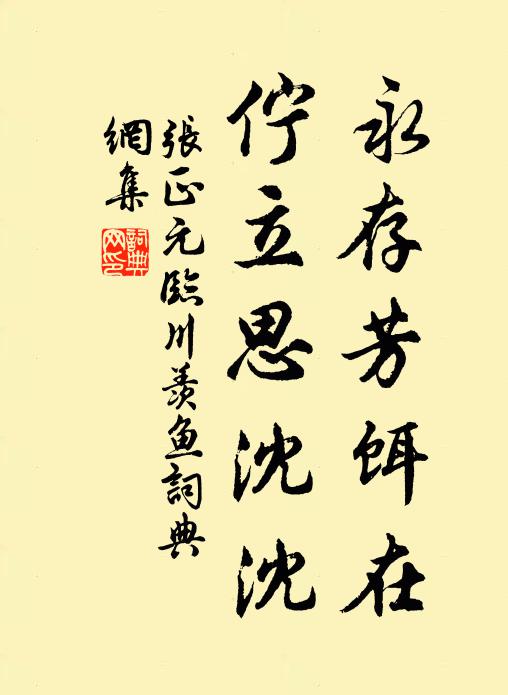 永存芳餌在
佇立思沈沈
張正元臨川羨魚詞典
網集
詞典
网印